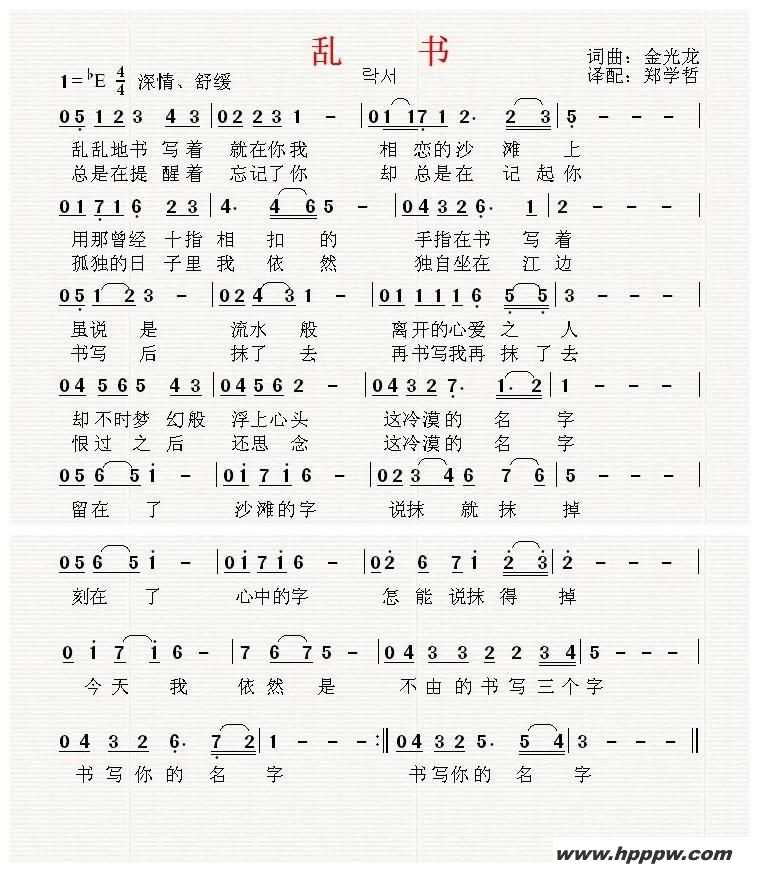 乱 书
词曲：金光龙
1=♭E 4/4 深情、舒缓 락서 译配：郑学哲
0 5 1 2 3 4 3 | 0 2 2 3 1 - | 0 1 1 7 1 2. 2 3 | 5 - - - |
乱乱地书 写着 就在你我 相 恋的沙 滩 上
总是在提 醒着 忘记了你 却 总是在 记 起你
0 1 7 1 6 2 3 | 4. 4 6 5 - | 0 4 3 2 6. 1 | 2 - - - |
用那曾经 十指 相 扣 的 手指在书 写 着
孤独的日 子里 我 依 然 独自坐在 江 边
0 5 1 2 3 - | 0 2 4 3 1 - | 0 1 1 1 1 6 5 5 | 3 - - - |
虽说 是 流水 般 离开的心爱 之 人
书写 后 抹了 去 再书写我再 抹 了去
0 4 5 6 5 4 3 | 0 4 5 6 2 - | 0 4 3 2 7. 1. 2 | 1 - - - |
却 不时梦 幻般 浮上心头 这冷漠的 名 字
恨 过 之 后 还思 念 这冷漠的 名 字
0 5 6 5 i - | 0 i 7 i 6 - | 0 2 3 4 6 7 6 | 5 - - - |
留在 了 沙滩的字 说抹 就 抹 掉
0 5 6 5 i - | 0 i 7 i 6 - | 0 2 6 7 i 2 3 | 2 - - - |
刻在 了 心中的字 怎 能 说抹 得 掉
0 i 7 i 6 - | 7 6 7 5 - | 0 4 3 3 2 2 3 4 | 5 - - - |
今 天 我 依 然 是 不 由 的 书 写 三 个 字
0 4 3 2 6. 7 2 | 1 - - - :‖ 0 4 3 2 5. 5 4 | 3 - - - ‖
书 写 你 的 名 字 书写你的 名 字
www.hpppw.com